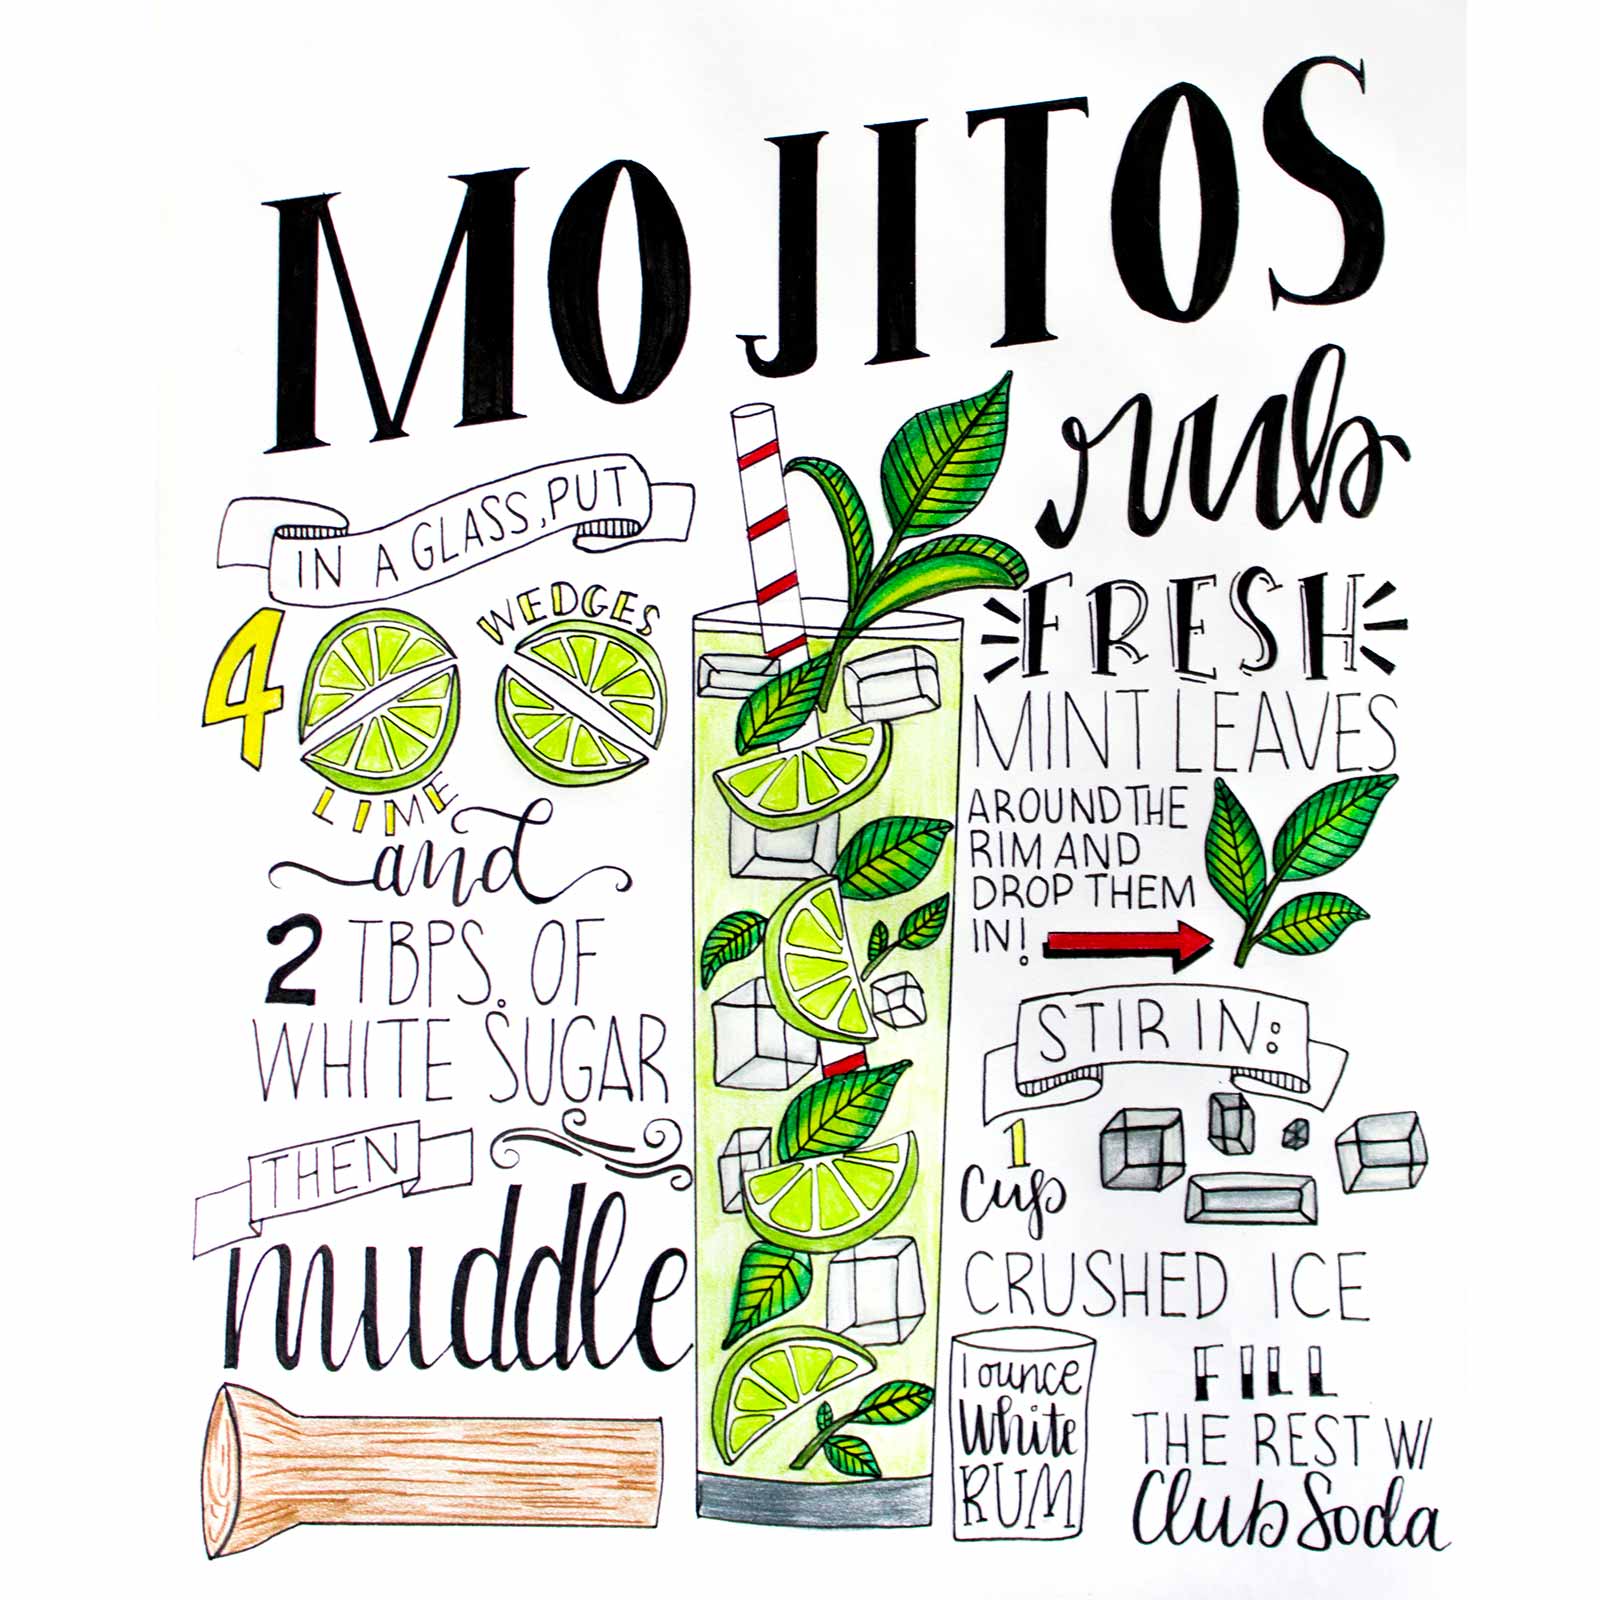 MOJITOS
IN A GLASS, PUT
4 WEDGES
LIME
and
2 TBPS. OF
WHITE SUGAR
THEN
muddle
rub
FRESH
MINT LEAVES
AROUND THE
RIM AND
DROP THEM
IN!
STIR IN:
1
cup
CRUSHED ICE
1 ounce
White
RUM
FILL
THE REST W/
Club Soda